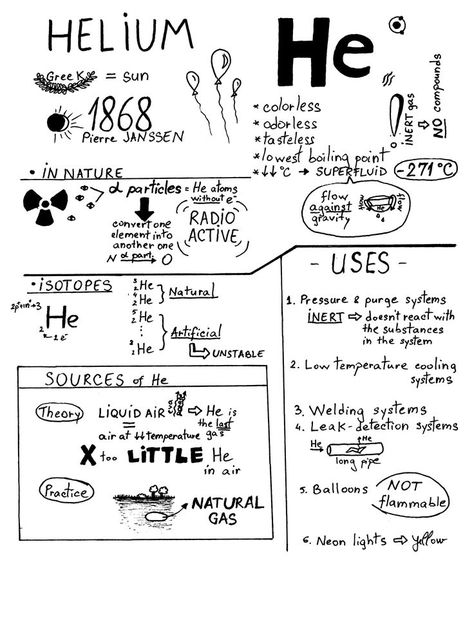 HELIUM
Greek = sun
1868
Pierre JANSSEN
He
* colorless
* odorless
* tasteless
* lowest boiling point
* ↓↓ °C → SUPERFLUID -271°C
flow
against
gravity
He
INERT gas ⇒ NO compounds
• IN NATURE
α particles = He atoms
without e⁻
convert one
element into
another one
N α part. O
RADIO
ACTIVE
• ISOTOPES
He
3 2 He
4 2 He
Natural
5 2 He
2 He
Artificial
UNSTABLE
SOURCES of He
Theory
LIQUID AIR ⇒ He is
the last
gas
= air at ↓↓ temperature
X too LITTLE He
in air
Practice
NATURAL
GAS
- USES -
1. Pressure & purge systems
INERT ⇒ doesn't react with
the substances
in the system
2. Low temperature cooling
systems
3. Welding systems
4. Leak-detection systems
He
He
long pipe
5. Balloons
NOT
flammable
6. Neon lights ⇒ yellow